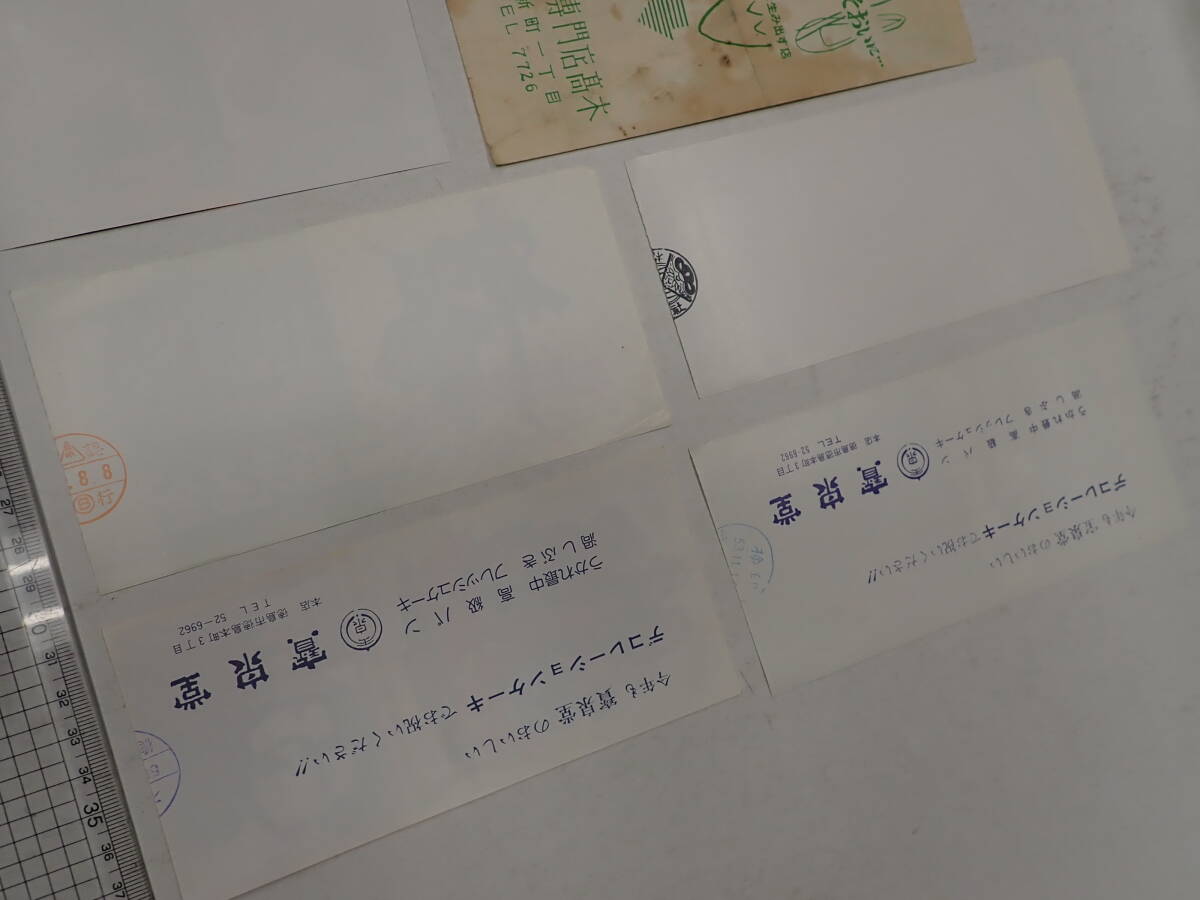 専門店髙木
新町一丁目
TEL 7726
生み出す店
でおいに…
8 8
行
今年も寳泉堂のおいしい
デコレーションケーキでお祝いください!!
うかれ最中 高級パン
渦しぶき フレッシュケーキ
寳泉堂
本店 徳島市徳島本町3丁目
TEL 52-6962
今年も宝泉堂のおいしい
デコレーションケーキでお祝いください!!
うかれ最中 高級パン
渦しぶき フレッシュケーキ
寳泉堂
本店 徳島市徳島本町3丁目
TEL 52-6962
27
28
29
30
31
32
33
34
35
36
37